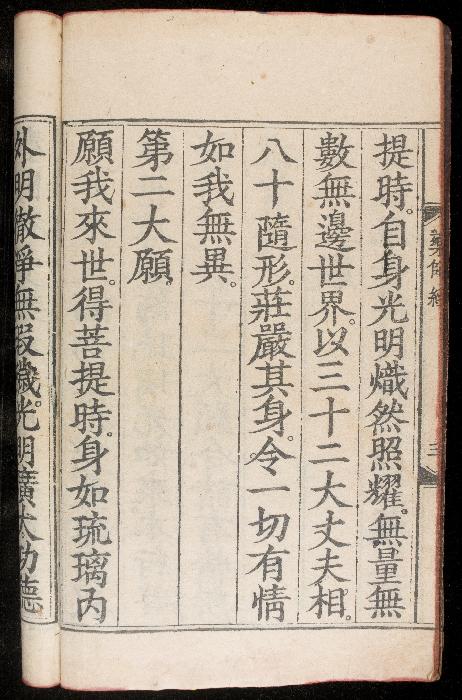 藥師經
三
提時。自身光明熾然照耀。無量無
數無邊世界。以三十二大丈夫相。
八十隨形。莊嚴其身。令一切有情
如我無異。
第二大願。
願我來世。得菩提時。身如琉璃內
外明徹淨無瑕穢。光明廣大功德